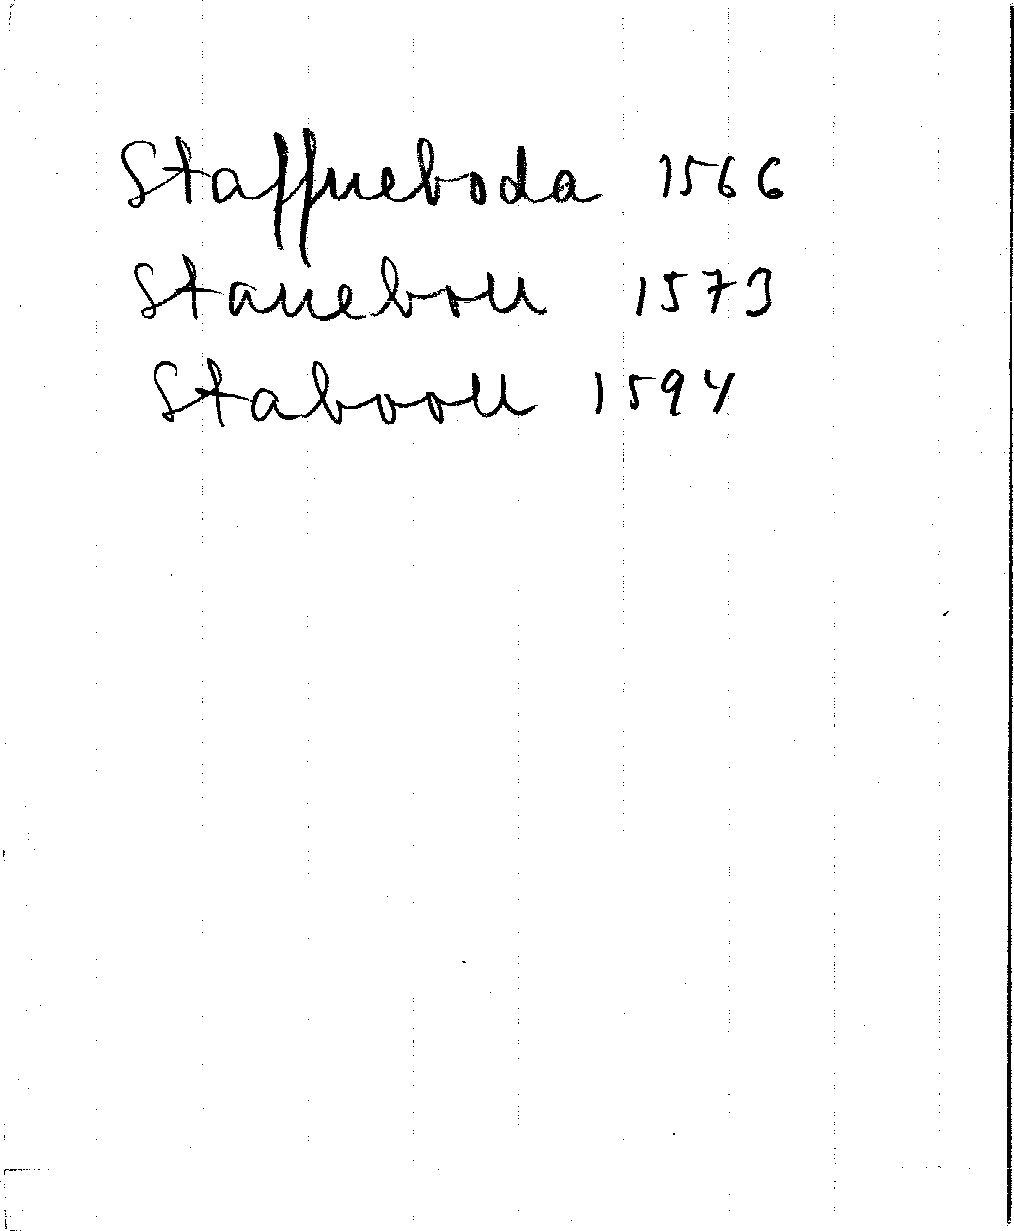 Staffneboda 1566
Staneboll 1573
Stabooll 1594